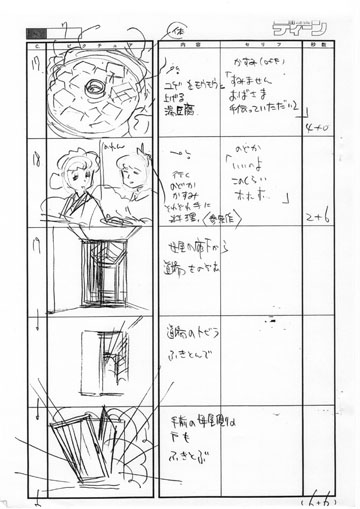 ディーン
7
C
ピクチュア
内容
セリフ
秒数
17
湯気をもうもうと
上げる
湯豆腐
かすみ(OFF)
「すみません
おばさま
手伝っていただいて」
4+0
18
のれん
行く
のどか
かすみ
それぞれ手に
料理。
のどか
「いいのよ
このくらい
」
2+6
19
母屋の廊下から
道場をのぞむ
道場のトビラ
ふきとんで
手前の母屋の
戸も
ふきとぶ